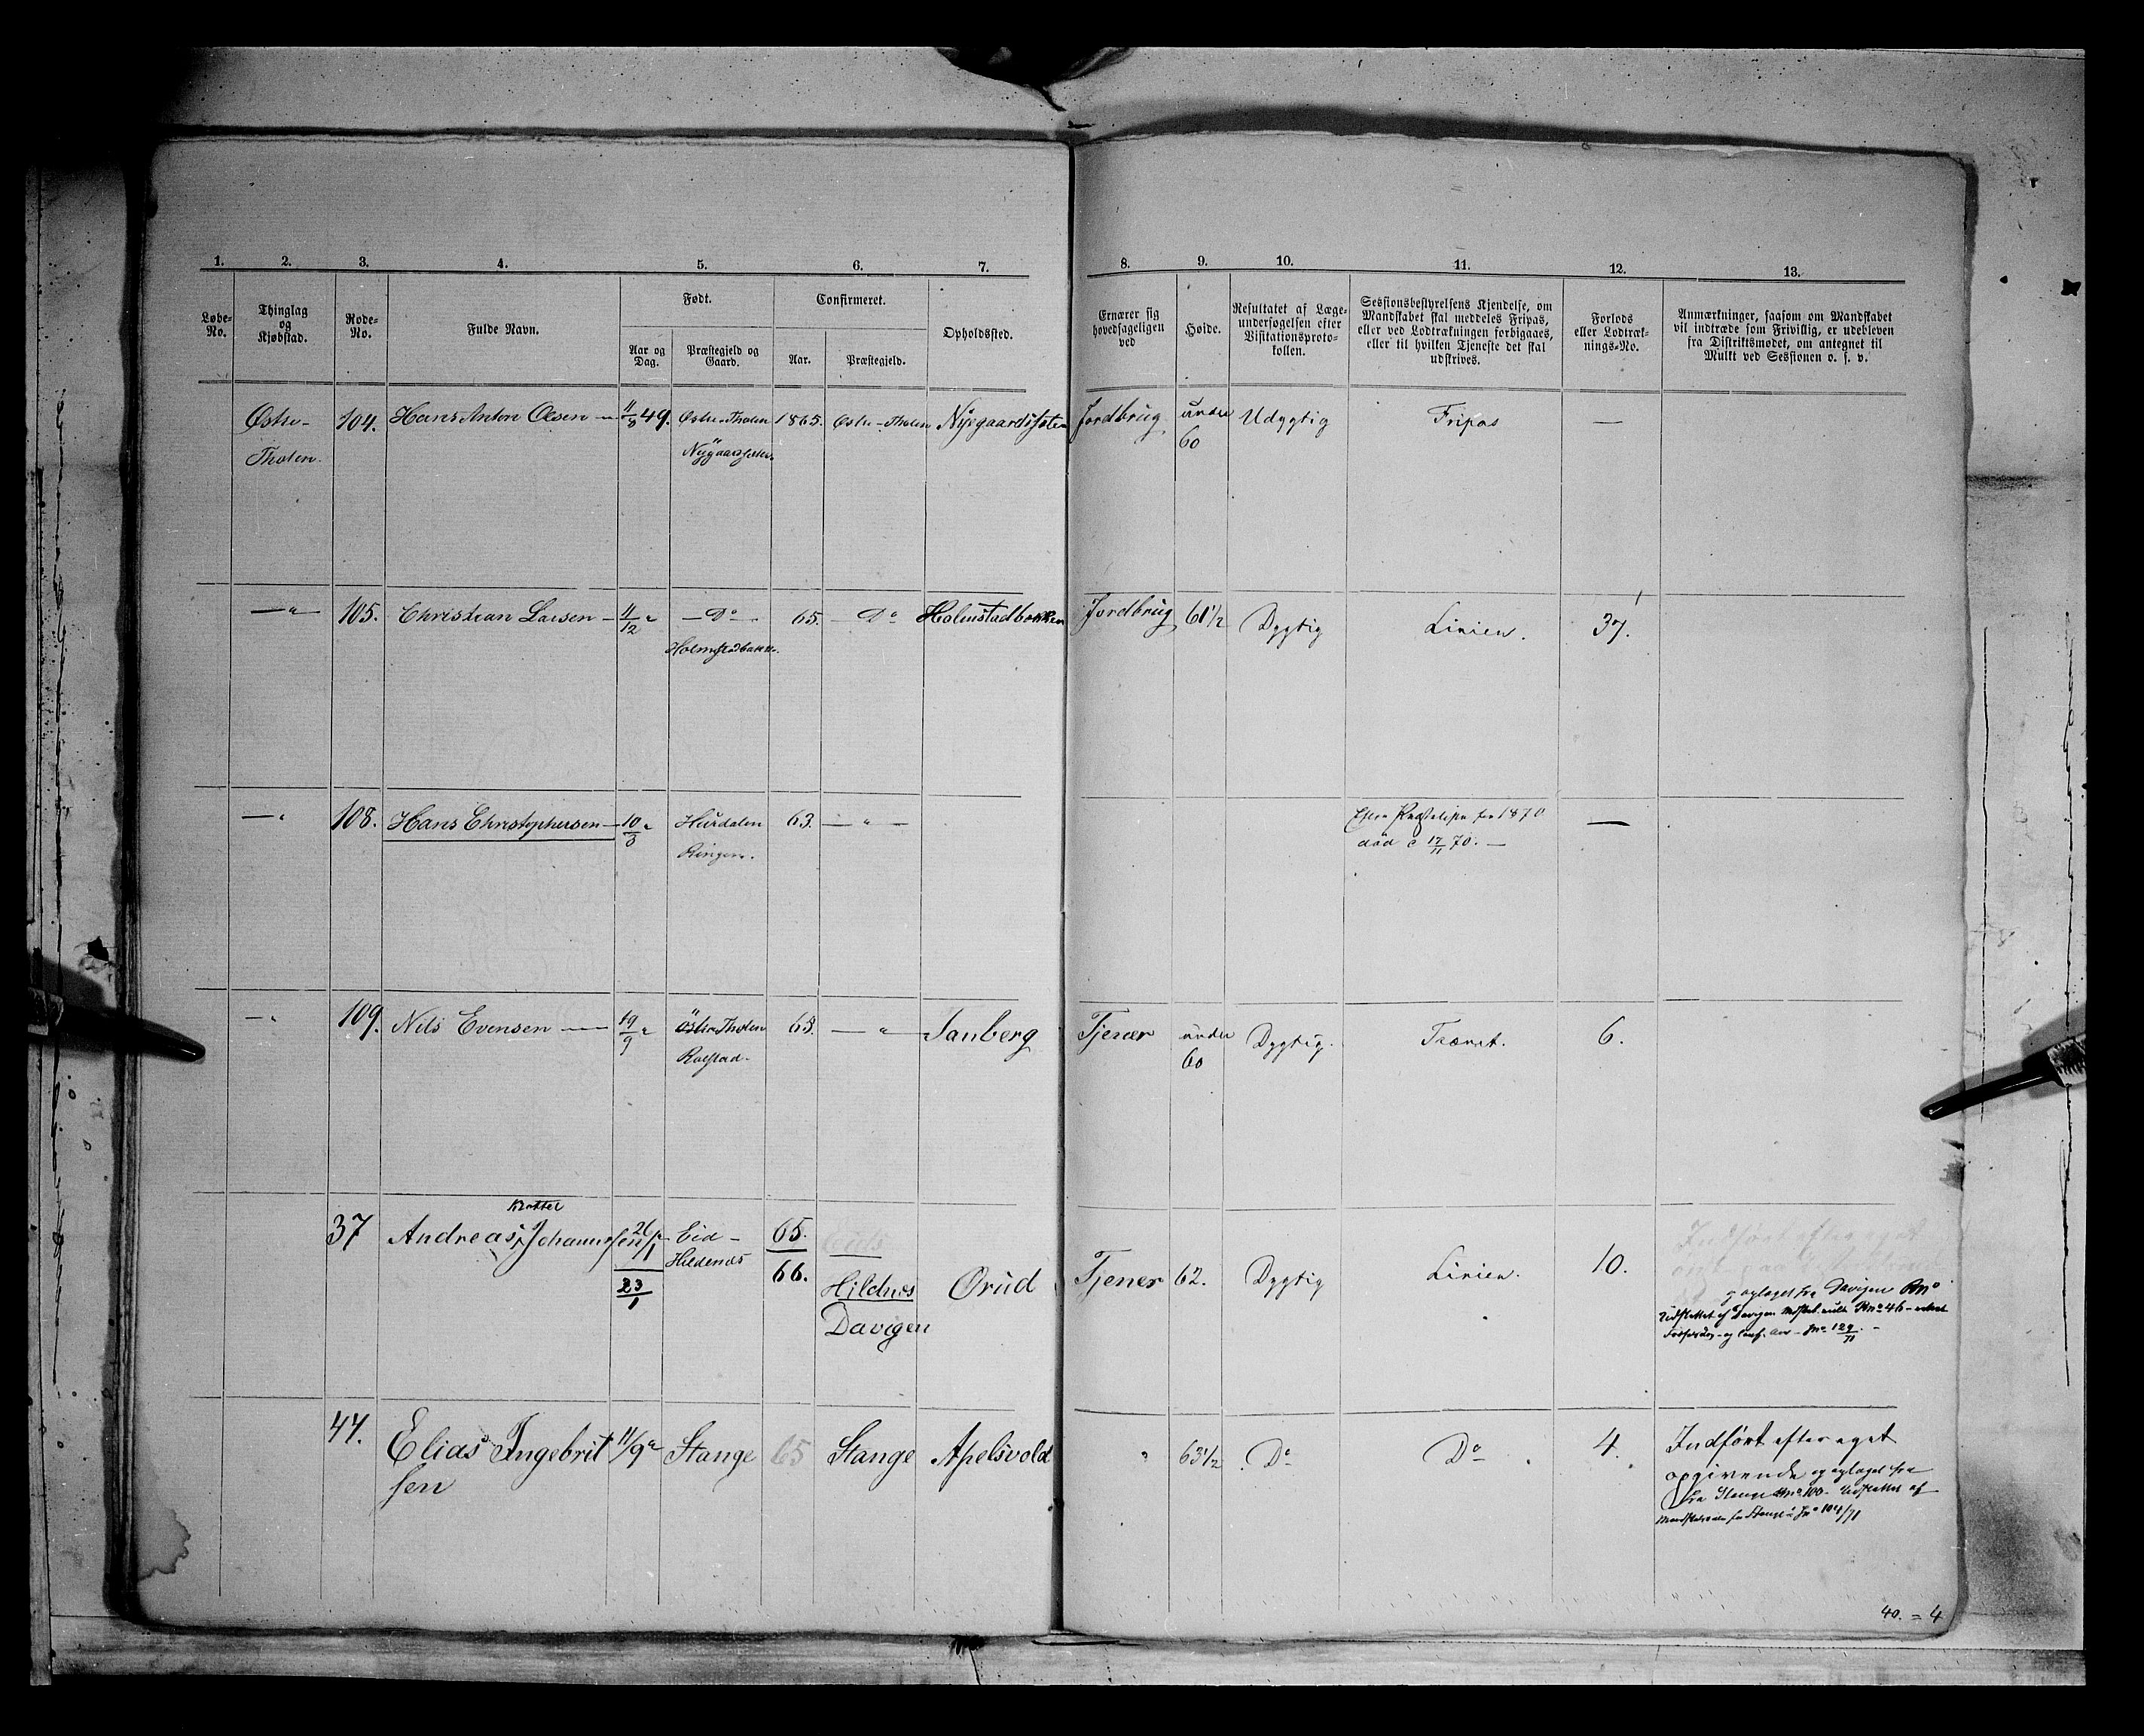 1. 2. 3. 4. 5. 6. 7. 8. 9. 10. 11. 12. 13.
Løbe-No.
Thinglag og Kjøbstad.
Rode-No.
Fulde Navn.
Født.
Aar og Dag.
Præstegjeld og Gaard.
Confirmeret.
Aar.
Præstegjeld.
Opholdssted.
Ernærer sig hovedsageligen ved
Høide.
Resultatet af Læge-undersøgelsen efter Visitationsproto-kollen.
Sessionsbestyrelsens Kjendelse, om Mandskabet skal meddeles Fripas, eller ved Lodtrækningen forbigaaes, eller til hvilken Tjeneste det skal udskrives.
Forlods eller Lodtræk-nings-No.
Anmærkninger, saasom om Mandskabet vil indtræde som Frivillig, er udebleven fra Distriktsmødet, om antegnet til Mulkt ved Sessionen o. s. v.
Østre- 104. Hans Anton Olsen — 11/8 49. Østre-Thoten 1865. Østre-Thoten Nygaard Jordbrug under Udygtig Fripas —
Thoten. 60
—"— 105. Christian Larsen — 11/12 " — Do — 65. — Do Holmstadbakken Jordbrug 61 1/2 Dygtig Linien. 37.
Holmstadbakken.
—" 108. Hans Christophersen — 10/8 " Hurdalen 63. —"— for 1870 —
Ringen. død 17/11 70. —
—" 109. Nils Evensen — 19/9 " Østre Thoten 65. —"— Tanberg Tjener under Dygtig. Trænet. 6.
Rolstad. 60
37 Andreas Johannessen 26/11 Eid - 65. Eids
Hildenes 66. Hildnes Ørud Tjener 62. Dygtig Linien. 10.
23/1 Davigen
Indført efter eget
og optaget fra Davigen Rno
Udslettet af Davigen
129/71
44. Elias Ingebrit 11/9 " Stange 65 Stange Apelsvold " 63 1/2 Do Do 4. Indført efter eget
sen opgivende og optaget fra
fra Stange Rno 100. Udslettet af
for Stange Jno 104/71
40. = 4